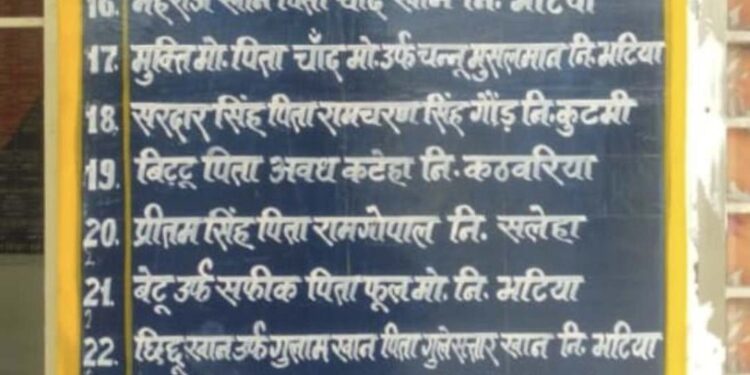 16. मेहराज खान पिता चाँद खान नि. भटिया
17. मुक्ति मो. पिता चाँद मो. उर्फ चन्नू मुसलमान नि. भटिया
18. सरदार सिंह पिता रामचरण सिंह गौंड़ नि. कुटमी
19. बिट्टू पिता अवध कटेहा नि. कठवरिया
20. प्रीतम सिंह पिता रामगोपाल नि. सलेहा
21. बेटू उर्फ सफीक पिता फूल मो. नि. भटिया
22. छिद्दू खान उर्फ गुलाम खान पिता गुलेसत्तार खान नि. भटिया